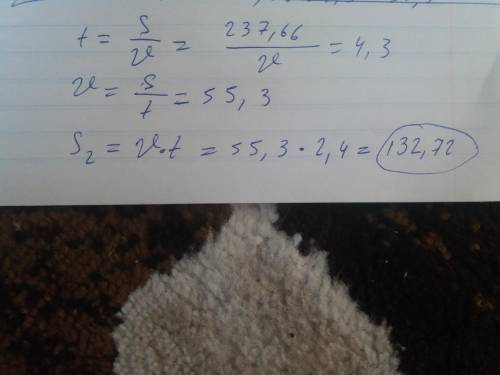 t = S/v = 237,66/v = 4,3
v = S/t = 55,3
S₂ = v·t = 55,3 · 2,4 = 132,72